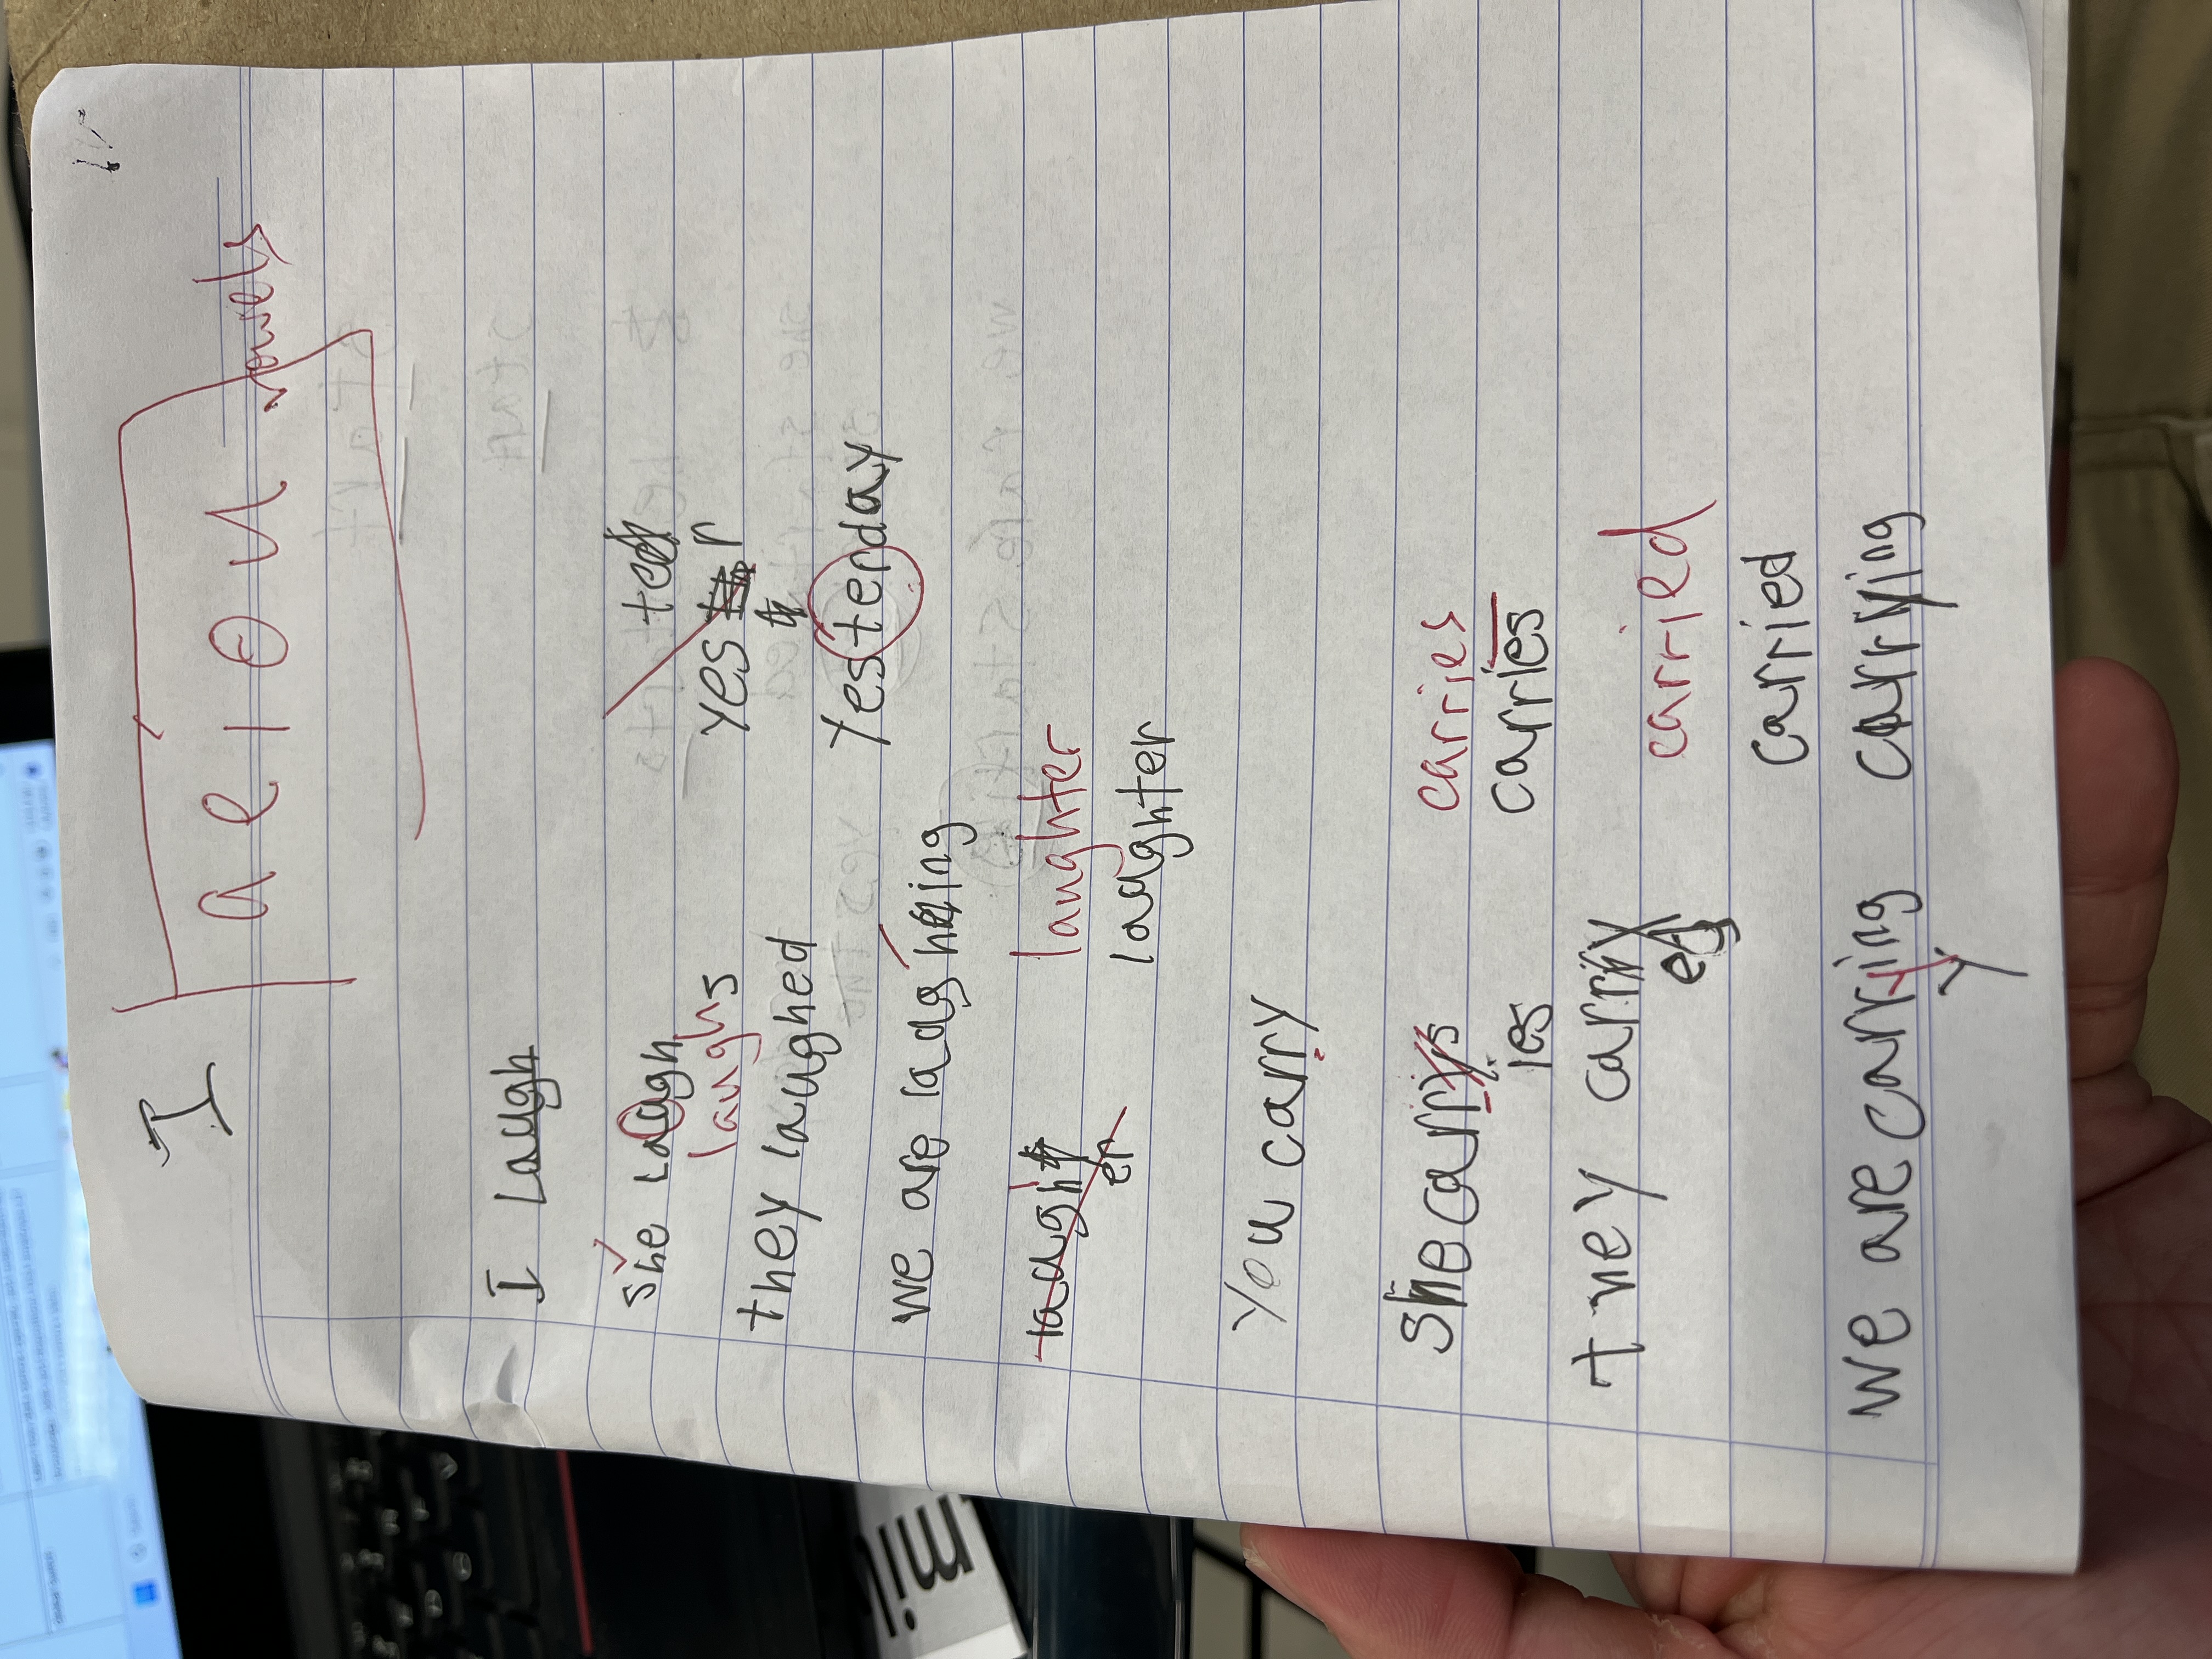 I
a e i o u vowels
I Laugh
she laugh
laughs
yes r
they laughed
Yesterday
we are laughing
laughter
laught
er
laughter
You carry
she carrys
carries
ies
carries
they carry
carried
ed
carried
we are carring carrying
y
mil